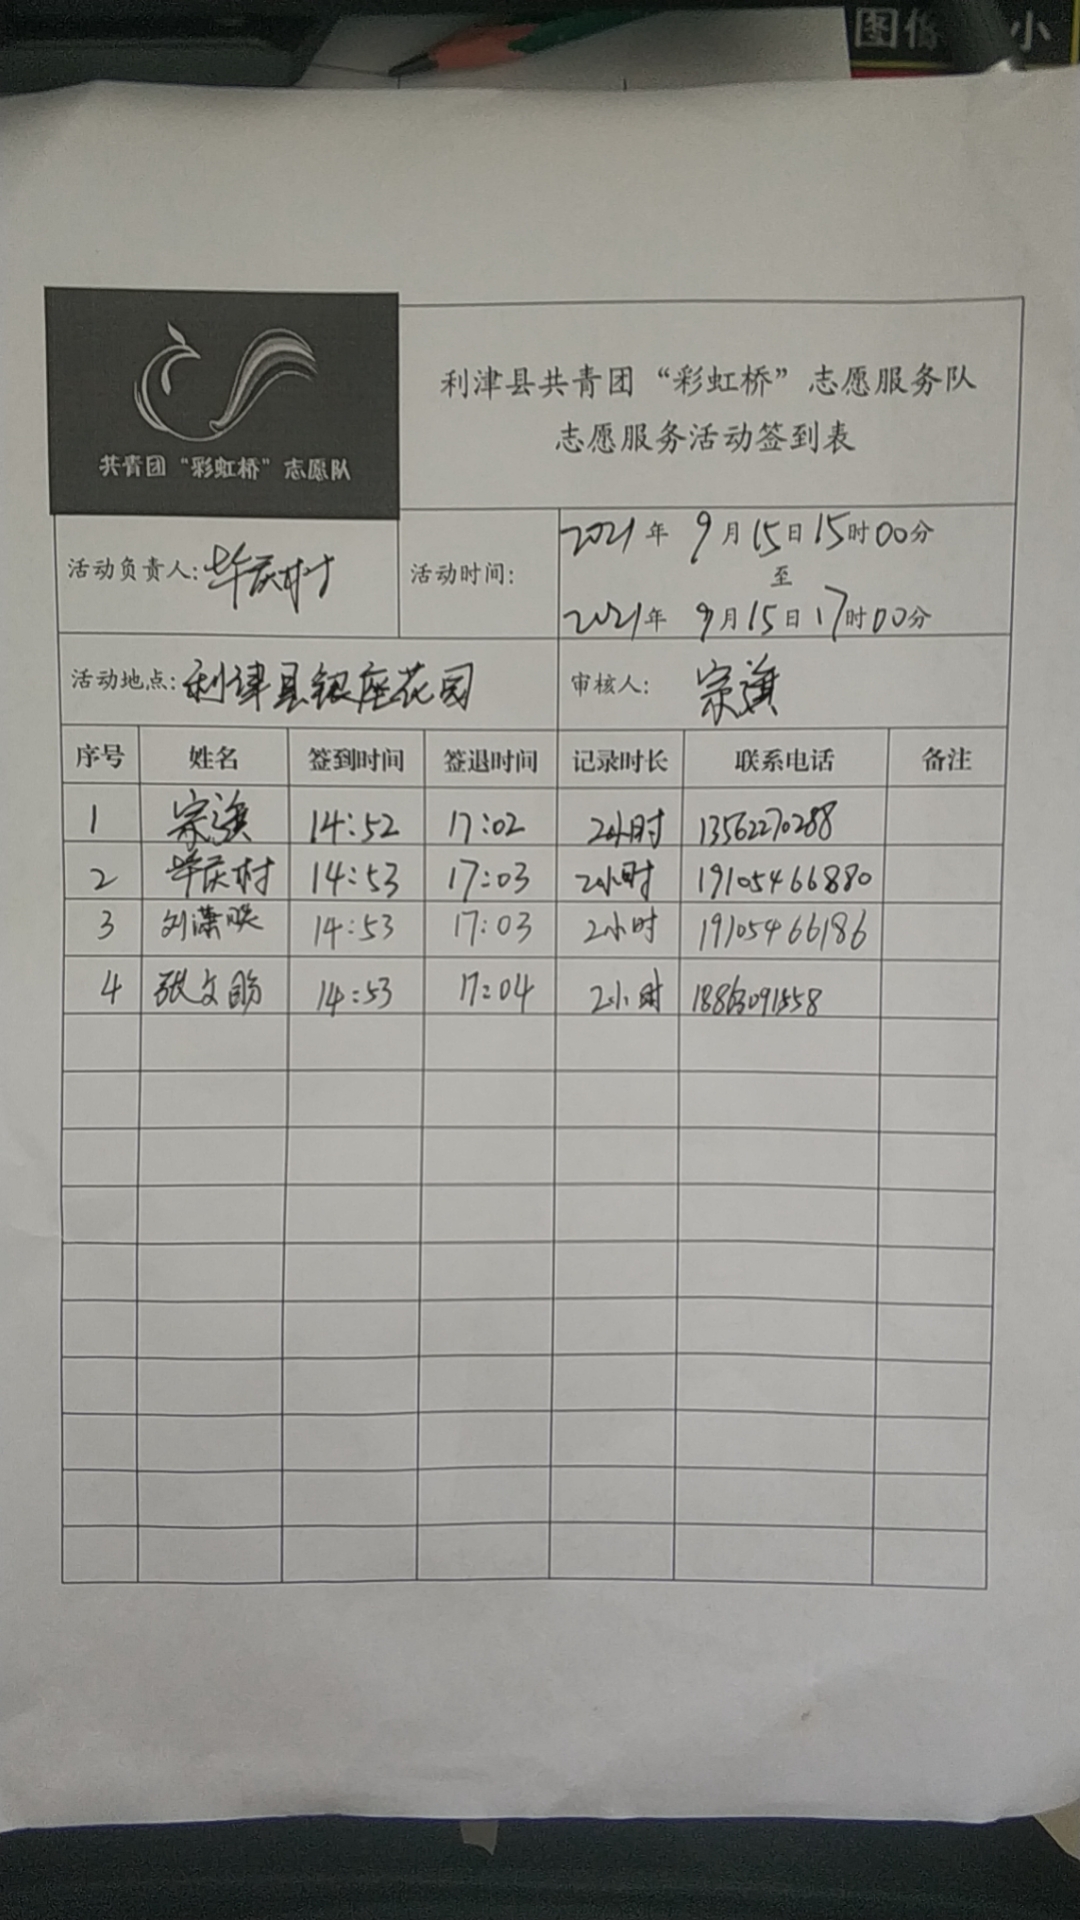 图像 小
利津县共青团“彩虹桥”志愿服务队
志愿服务活动签到表
共青团“彩虹桥”志愿队
活动负责人:毕庆村
活动时间:
2021年 9月15日15时00分
至
2021年 9月15日17时00分
活动地点:利津县银座花园
审核人: 宗
序号 姓名 签到时间 签退时间 记录时长 联系电话 备注
1 宗 14:52 17:02 2小时 13562270288
2 毕庆村 14:53 17:03 2小时 19105466880
3 刘潇 14:53 17:03 2小时 19105466186
4 张文 14:53 17:04 2小时